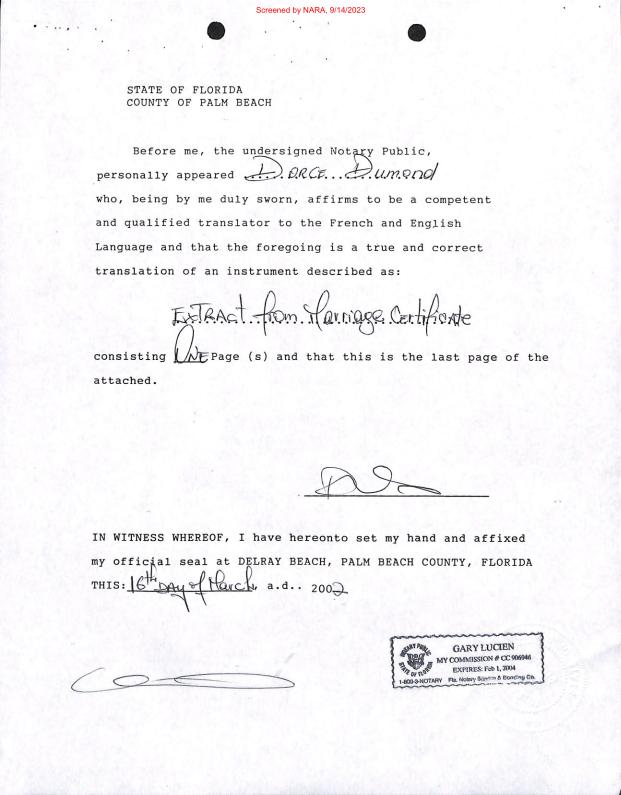 Screened by NARA, 9/14/2023
STATE OF FLORIDA
COUNTY OF PALM BEACH
Before me, the undersigned Notary Public,
personally appeared D.ORCE...Dumond
who, being by me duly sworn, affirms to be a competent
and qualified translator to the French and English
Language and that the foregoing is a true and correct
translation of an instrument described as:
EXTRAct from Marriage Certificate
consisting ONE Page (s) and that this is the last page of the
attached.
IN WITNESS WHEREOF, I have hereonto set my hand and affixed
my official seal at DELRAY BEACH, PALM BEACH COUNTY, FLORIDA
THIS: 16th DAy of March, a.d.. 2002
NOTARY PUBLIC
STATE OF FLORIDA
GARY LUCIEN
MY COMMISSION # CC 906946
EXPIRES: Feb 1, 2004
1-800-3-NOTARY Fla. Notary Service & Bonding Co.